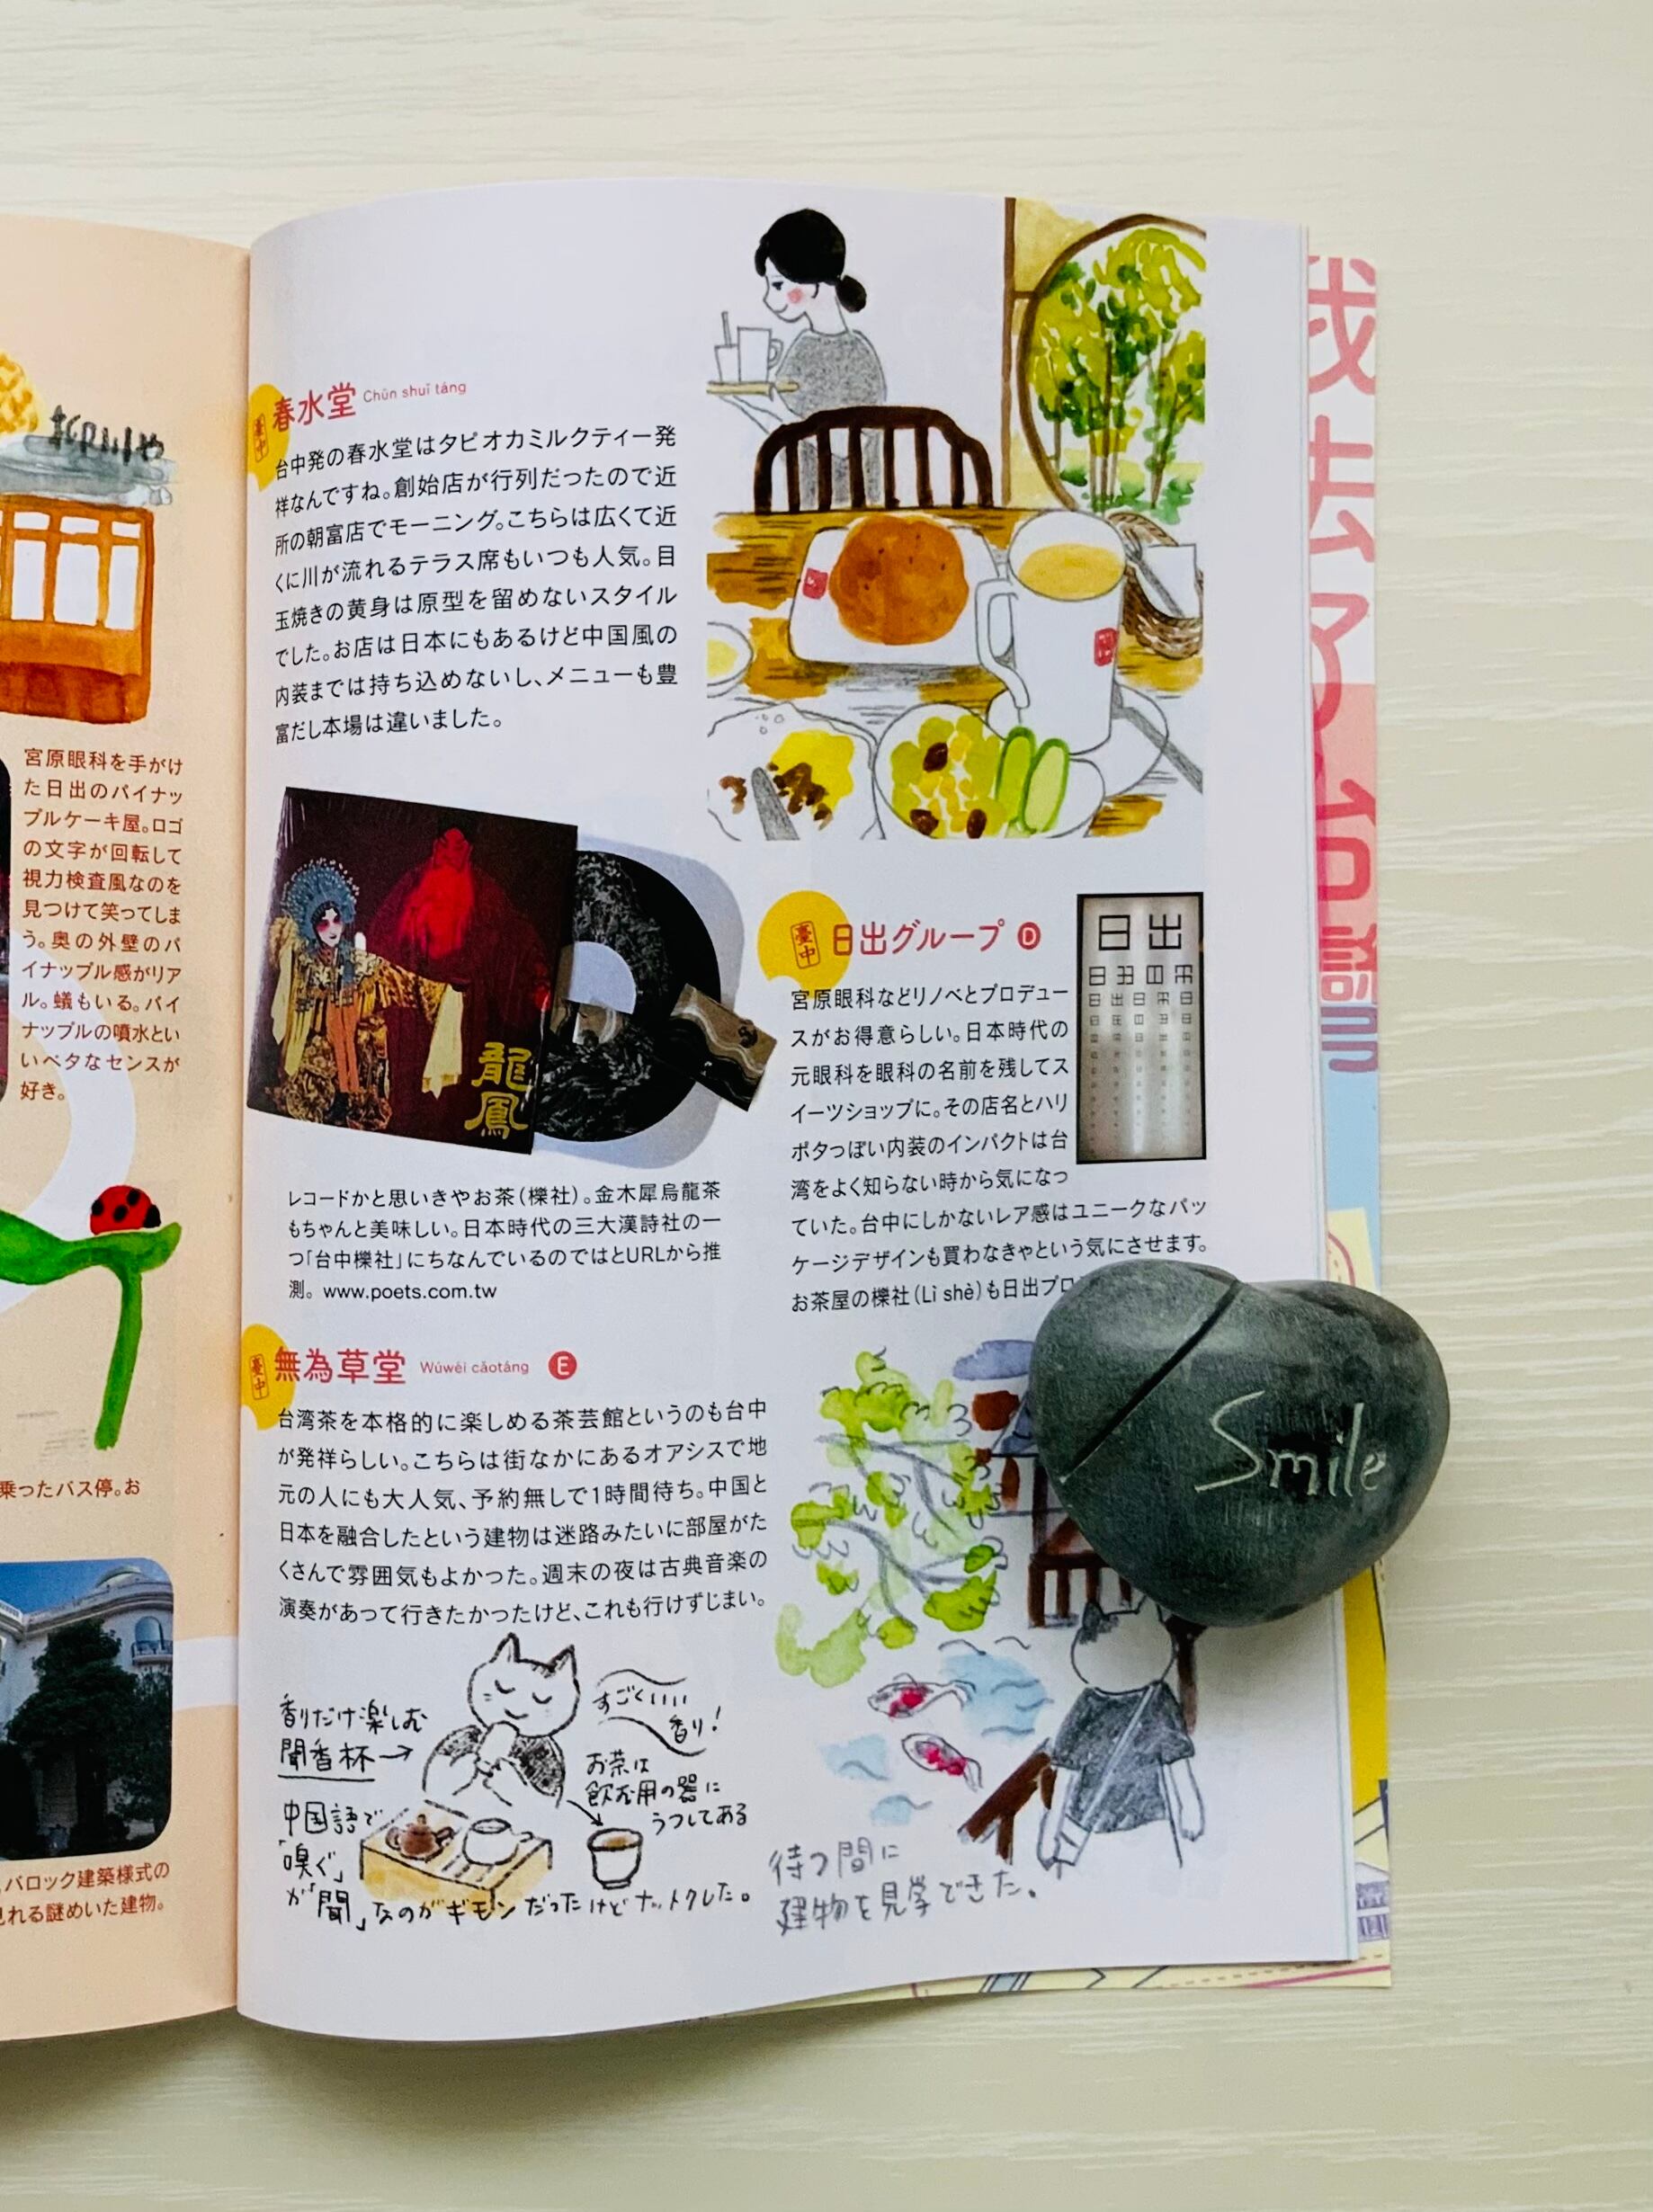 宮原眼科を手がけ
た日出のパイナッ
プルケーキ屋。ロゴ
の文字が回転して
視力検査風なのを
見つけて笑ってしま
う。奥の外壁のパ
イナップル感がリア
ル。蟻もいる。パイ
ナップルの噴水とい
いベタなセンスが
好き。
乗ったバス停。お
バロック建築様式の
れる謎めいた建物。
臺中
春水堂 Chūn shuǐ táng
台中発の春水堂はタピオカミルクティー発
祥なんですね。創始店が行列だったので近
所の朝富店でモーニング。こちらは広くて近
くに川が流れるテラス席もいつも人気。目
玉焼きの黄身は原型を留めないスタイル
でした。お店は日本にもあるけど中国風の
内装までは持ち込めないし、メニューも豊
富だし本場は違いました。
龍
鳳
レコードかと思いきやお茶（櫟社）。金木犀烏龍茶
もちゃんと美味しい。日本時代の三大漢詩社の一
つ「台中櫟社」にちなんでいるのではとURLから推
測。www.poets.com.tw
臺中
日出グループ D
日出
宮原眼科などリノベとプロデュー
スがお得意らしい。日本時代の
元眼科を眼科の名前を残してス
イーツショップに。その店名とハリ
ポタっぽい内装のインパクトは台
湾をよく知らない時から気になっ
ていた。台中にしかないレア感はユニークなパッ
ケージデザインも買わなきゃという気にさせます。
お茶屋の櫟社（Lì shè）も日出プロ
臺中
無為草堂 Wúwéi cǎotáng E
台湾茶を本格的に楽しめる茶芸館というのも台中
が発祥らしい。こちらは街なかにあるオアシスで地
元の人にも大人気、予約無しで1時間待ち。中国と
日本を融合したという建物は迷路みたいに部屋がた
くさんで雰囲気もよかった。週末の夜は古典音楽の
演奏があって行きたかったけど、これも行けずじまい。
香りだけ楽しむ
聞香杯→
すごくいい
香り！
お茶は
飲む用の器に
うつしてある
中国語で
「嗅ぐ」
が「聞」なのがギモンだったけどナットクした。
待つ間に
建物を見学できた。
Smile
我去
台